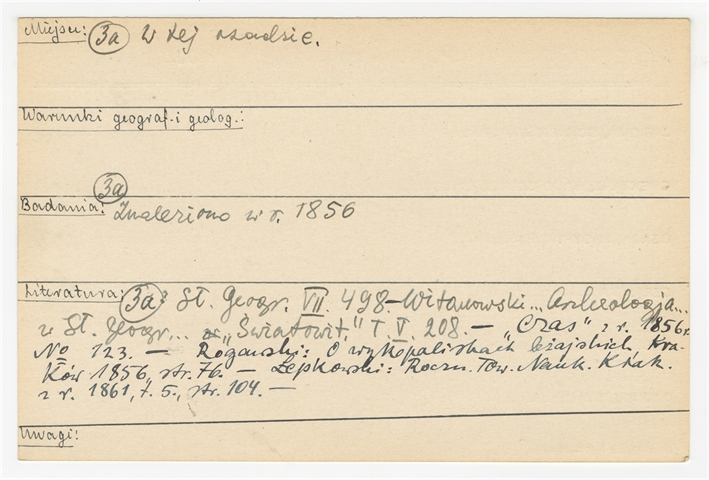 Miejsce: (3a) W tej osadzie.
Warunki geograf. i geolog.:
(3a)
Badania: Znaleziono w r. 1856
Literatura: (3a): Sł. Geogr. VII. 498.- Witanowski... Archeologja...
w Sł. Geogr... "Światowit," T. V. 208. - "Czas" z r. 1856 r.
No 123. - Rogawski: O wykopaliskach leżajskich, Kra-
ków 1856, str. 76. - Łepkowski: Roczn. Tow. Nauk. Krak.
z r. 1861, t. 5., str. 104. -
Uwagi: